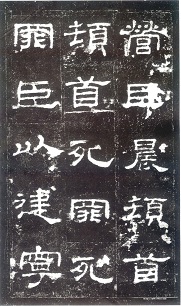 書臣晨頓首
頓首死罪死
罪臣以建寧